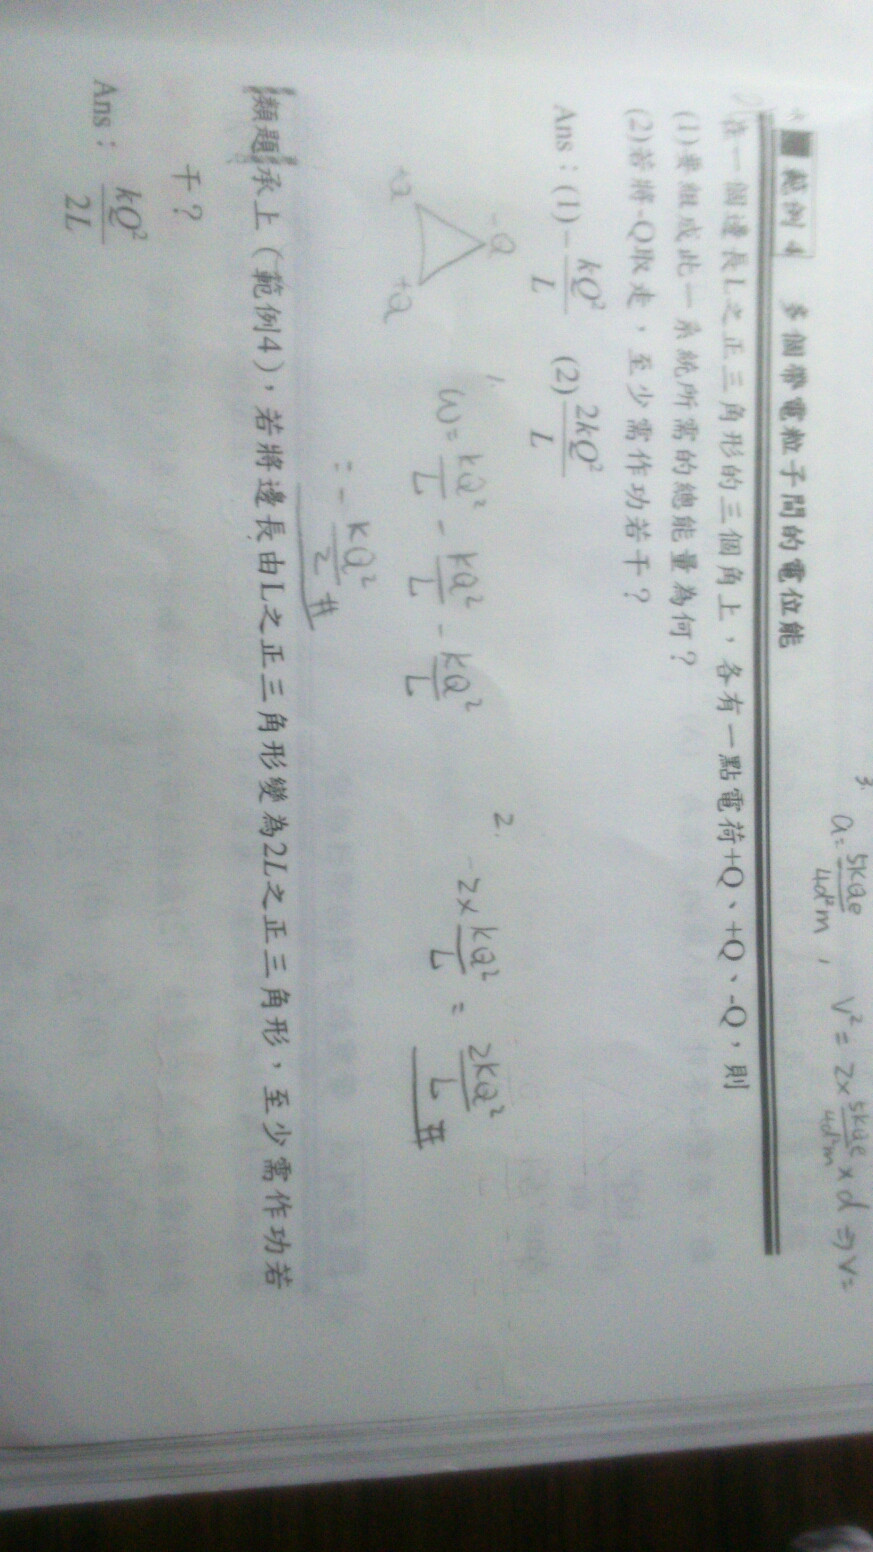 3.
a=5kQe/4d²m, V²=2×5kQe/4d²m×d⇒V=
範例4 多個帶電粒子間的電位能
在一個邊長L之正三角形的三個角上，各有一點電荷+Q、+Q、-Q，則
(1)要組成此一系統所需的總能量為何？
(2)若將-Q取走，至少需作功若干？
Ans：(1)-kQ²/L (2)2kQ²/L
-Q
+Q +Q
1.
W=kQ²/L-kQ²/L-kQ²/L
=-kQ²/2 #
2.
-2×kQ²/L=2kQ²/L #
類題 承上（範例4），若將邊長由L之正三角形變為2L之正三角形，至少需作功若
干？
Ans：kQ²/2L